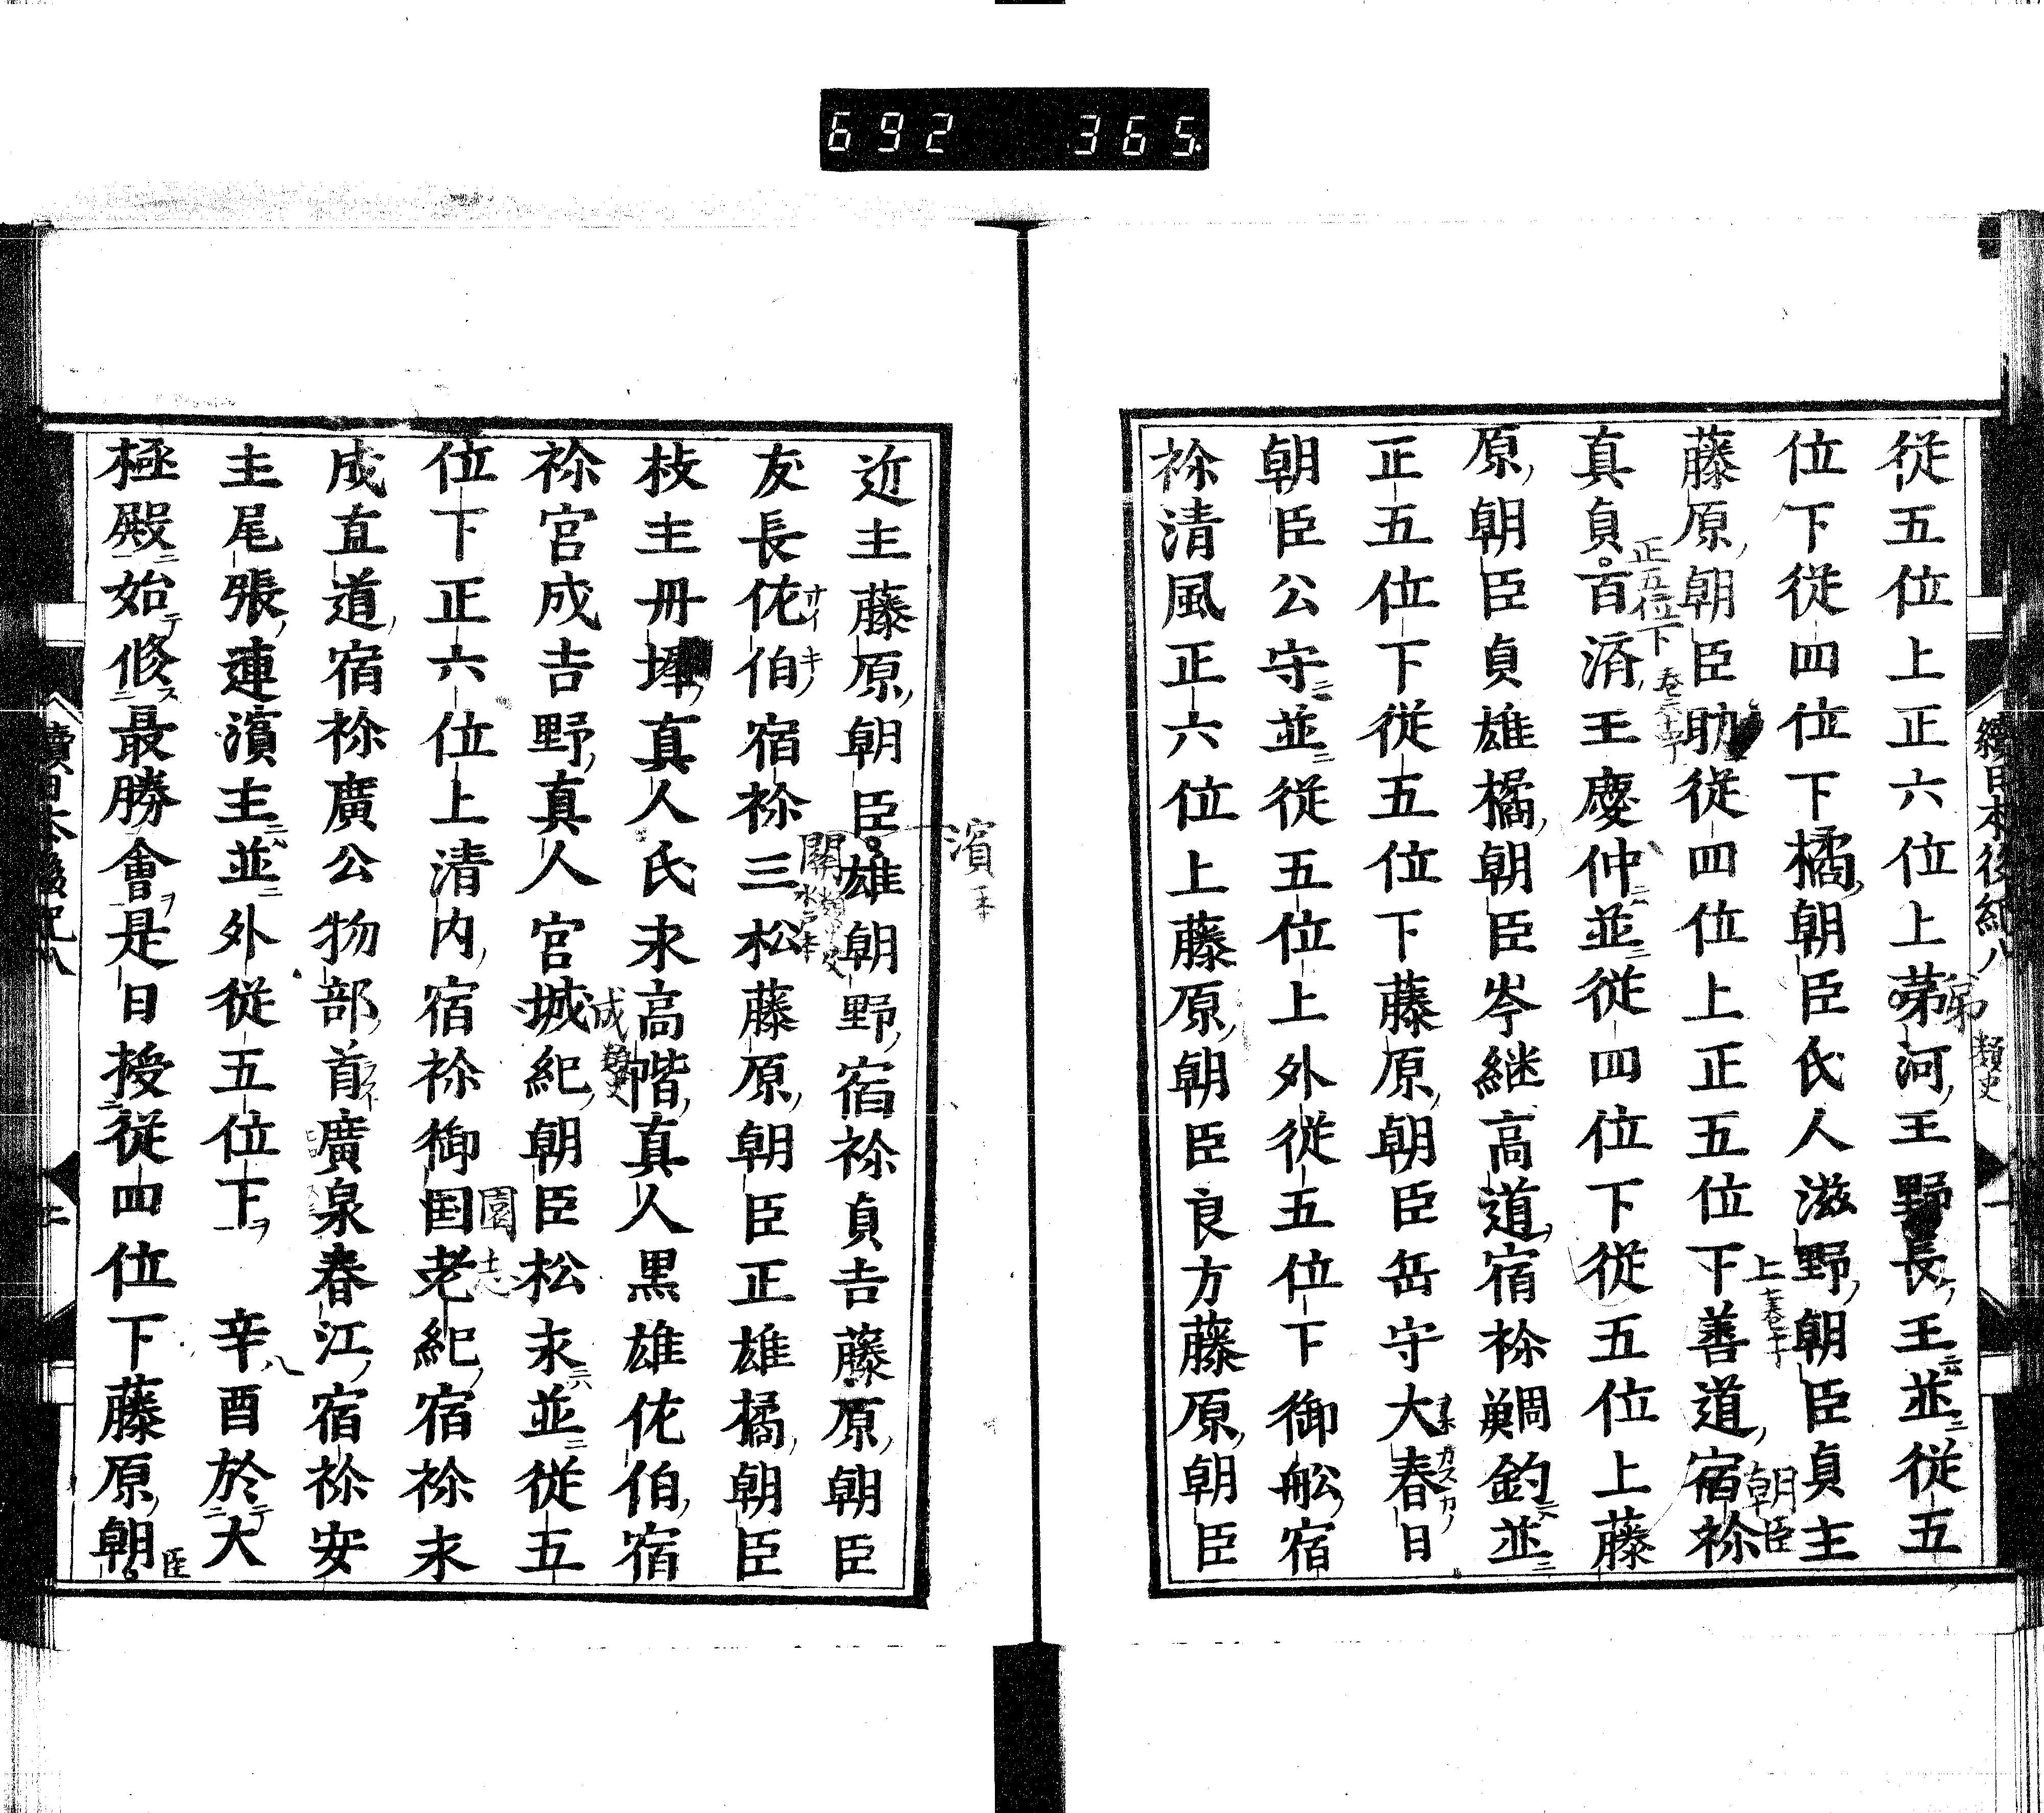 692 365
續日本後紀八 一
從五位上正六位上茀河王野長王並從五
弟 類史
位下從四位下橘朝臣氏人滋野朝臣貞主
藤原朝臣助從四位上正五位下善道宿祢
朝臣
真貞百済王慶仲並從四位下從五位上藤
正五位下
原朝臣貞雄橘朝臣岑継高道宿祢鯛釣並
正五位下從五位下藤原朝臣岳守大春日
朝臣公守並從五位上外從五位下御船宿
祢清風正六位上藤原朝臣良方藤原朝臣
近主藤原朝臣雄朝野宿祢貞吉藤原朝臣
濱
友長佐伯宿祢三松藤原朝臣正雄橘朝臣
關
枝主丹墀真人氏永高階真人黒雄佐伯宿
祢宮成吉野真人宮城紀朝臣松永並從五
成 類史
位下正六位上清内宿祢御国老紀宿祢末
園
成直道宿祢廣公物部首廣泉春江宿祢安
主尾張連濱主並外從五位下 辛酉於大
八
極殿始修最勝會是日授從四位下藤原朝
臣